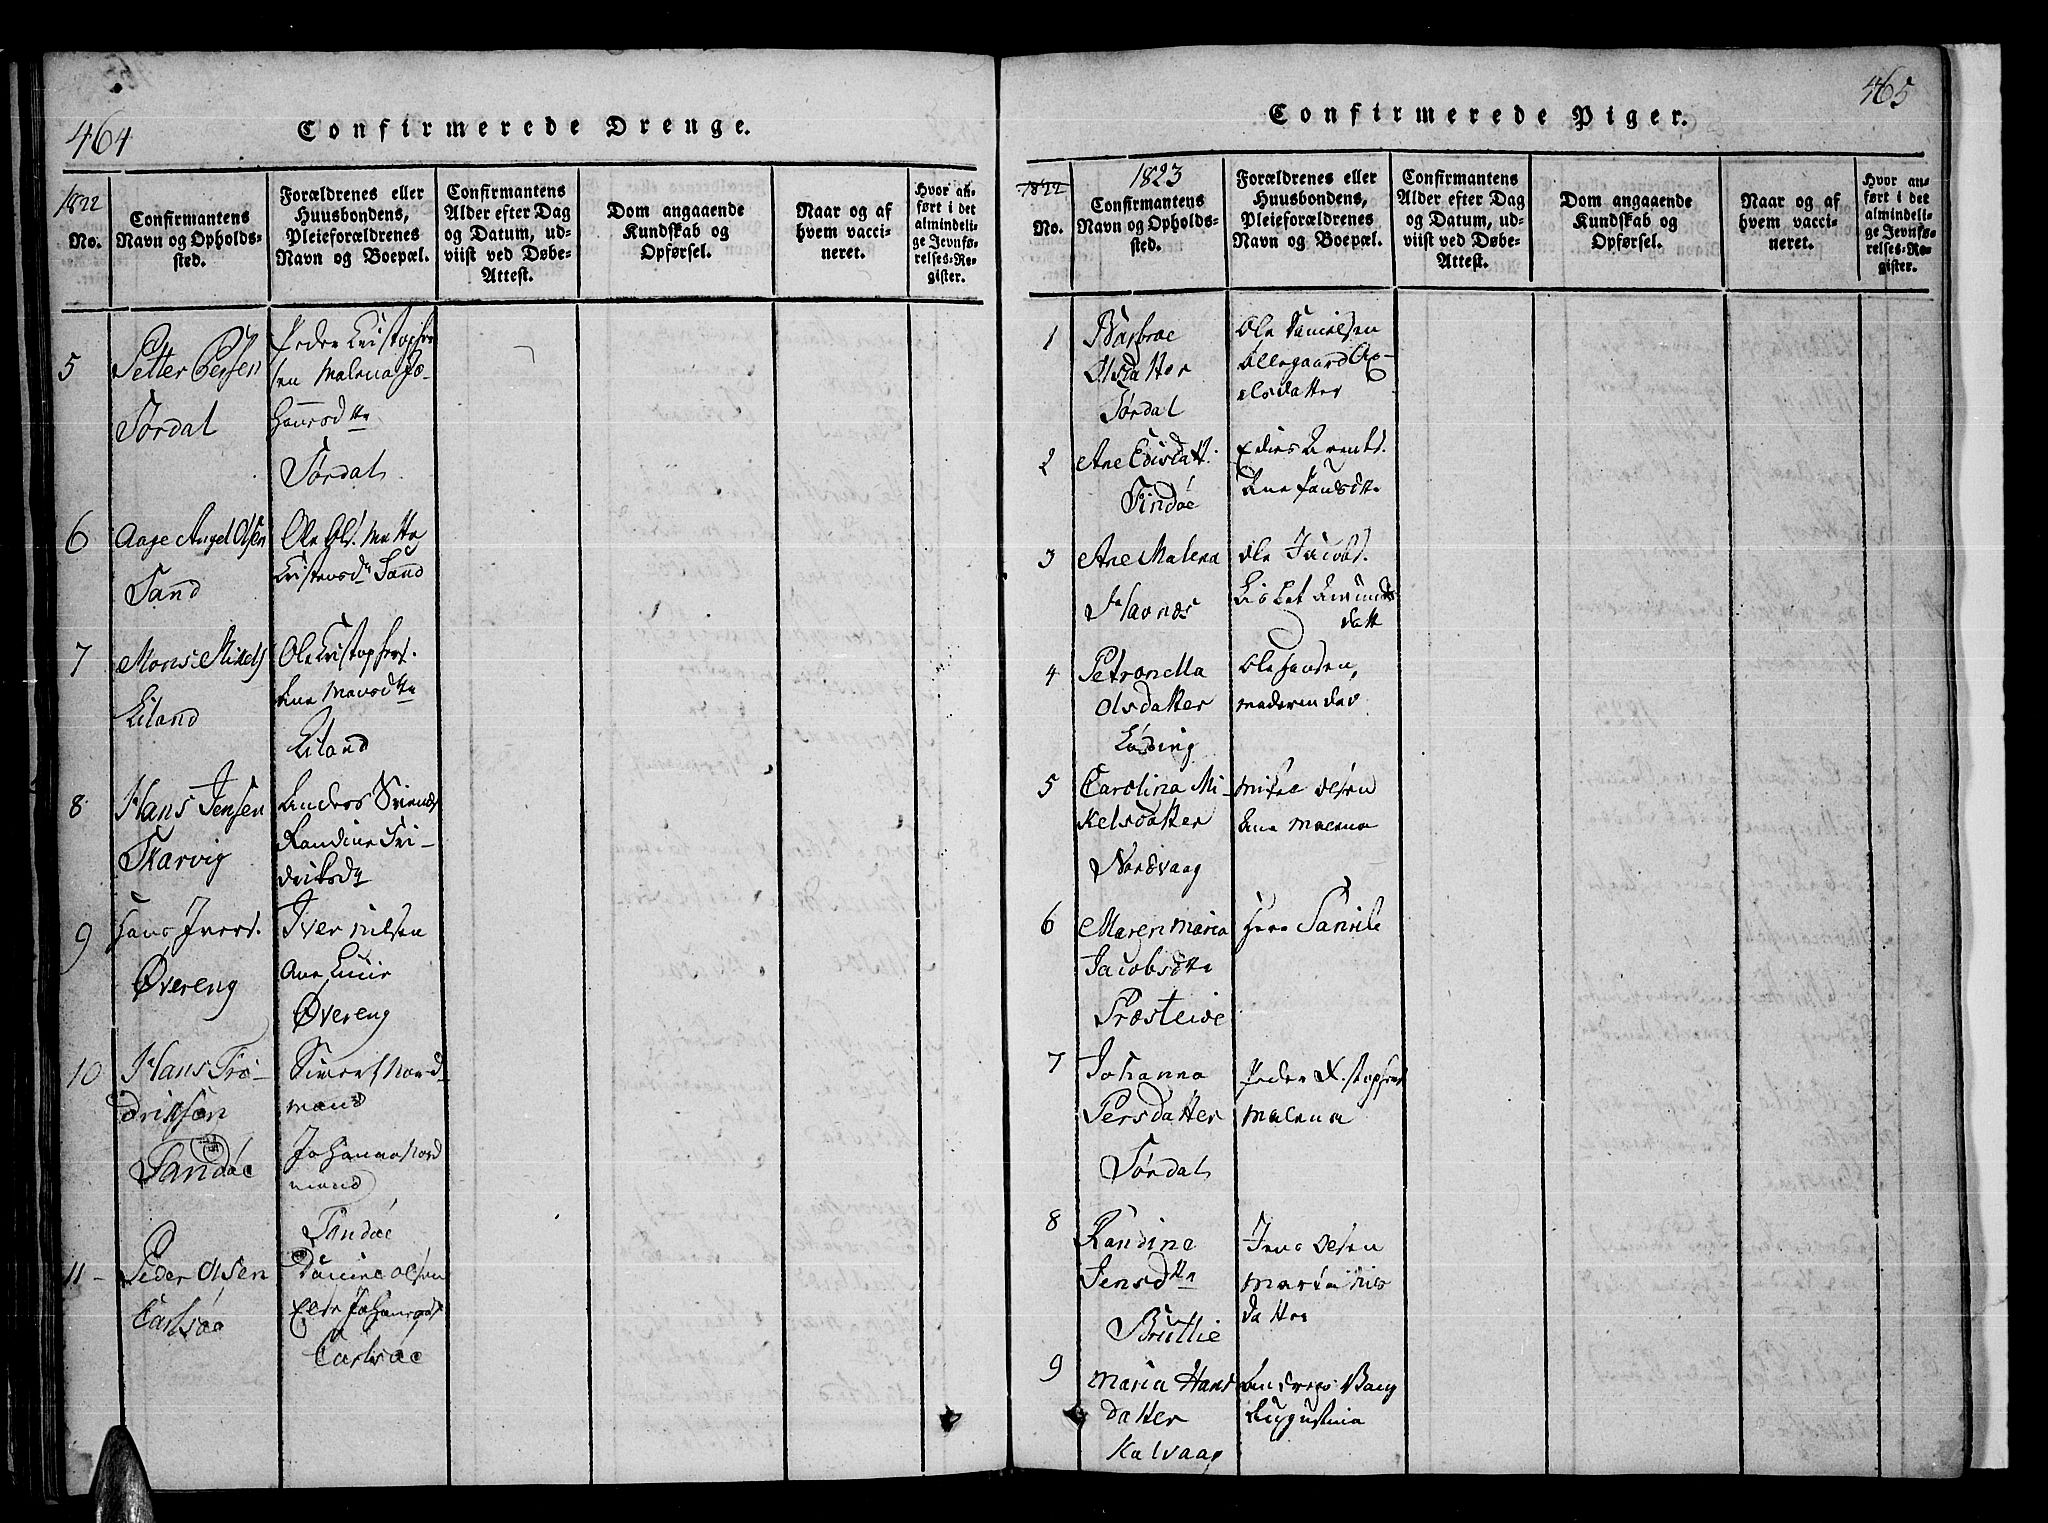 464
Confirmerede Drenge.
1822
No.
Confirmantens
Navn og Opholds-
sted.
Forældrenes eller
Huusbondens,
Pleieforældrenes
Navn og Boepæl.
Confirmantens
Alder efter Dag
og Datum, ud-
viist ved Døbe-
Attest.
Dom angaaende
Kundskab og
Opførsel.
Naar og af
hvem vacci-
neret.
Hvor an-
ført i det
almindeli-
ge Jevnfø-
relses-Re-
gister.
5
Petter Persen
Tørdal
Peder Cristopher
sen Malena Jo-
hansdtt
Tørdal
6
Aage Angel Olsen
Sand
Ole Ols. Mette
Sand
7
Mons Mikels
Eiland
Ole Cristophers.
Ane Monsdtt
Eiland
8
Hans Jensen
Skarvig
Anders
Randine Fri-
driksd
9
Hans Ivers.
Øvereng
Iver Nilsen
Ane Lucie
Øvereng
10
Hans Fre-
driksen
Sandøe
Simon Nord-
mand
Johanna Nord
mand
Sandøe
11
Peder Olsen
Carlsøe
Olsen
Carlsøe
465
Confirmerede Piger.
1822
1823
No.
Confirmantens
Navn og Opholds-
sted.
Forældrenes eller
Huusbondens,
Pleieforældrenes
Navn og Boepæl.
Confirmantens
Alder efter Dag
og Datum, ud-
viist ved Døbe-
Attest.
Dom angaaende
Kundskab og
Opførsel.
Naar og af
hvem vacci-
neret.
Hvor an-
ført i det
almindeli-
ge Jevnfø-
relses-Re-
gister.
1
Barbroe
Olsdatter
Tørdal
Ole Danielsen
Ollegaard Ax-
elsdatter
2
Ane Edisdatt.
Findøe
Ane Jansdtt
3
Ane Malena
Havnæs
Ole Jacobs.
Lisbet Amunds
datt
4
Petronella
Olsdatter
Løding
Ole Hansen,
moderen død
5
Carolina Mi-
kelsdatter
Nordvaag
Mikel Olsen
Ane Malena
6
Maren Maria
Jacobsdtt
Præsteide
Herr
7
Johanna
Persdatter
Tørdal
Peder X.stophers
Malena
8
Randine
Jensdtt
Jens Olsen
Marta Nils
datter
9
Maria Hans
datter
Kalvaag
Andreas Bang
Augustina